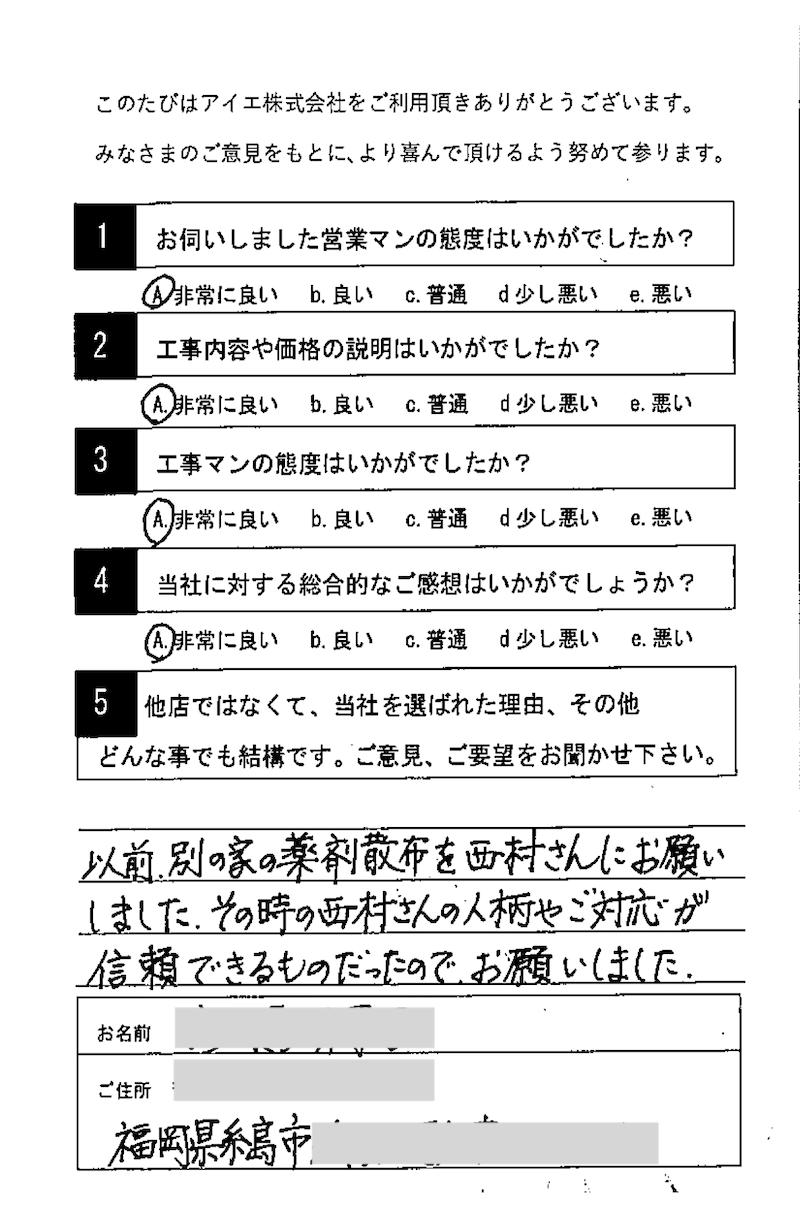 このたびはアイエ株式会社をご利用頂きありがとうございます。
みなさまのご意見をもとに、より喜んで頂けるよう努めて参ります。
1 お伺いしました営業マンの態度はいかがでしたか？
A 非常に良い b. 良い c. 普通 d 少し悪い e. 悪い
2 工事内容や価格の説明はいかがでしたか？
A. 非常に良い b. 良い c. 普通 d 少し悪い e. 悪い
3 工事マンの態度はいかがでしたか？
A. 非常に良い b. 良い c. 普通 d 少し悪い e. 悪い
4 当社に対する総合的なご感想はいかがでしょうか？
A. 非常に良い b. 良い c. 普通 d 少し悪い e. 悪い
5 他店ではなくて、当社を選ばれた理由、その他
どんな事でも結構です。ご意見、ご要望をお聞かせ下さい。
以前、別の家の薬剤散布を西村さんにお願い
しました。その時の西村さんの人柄やご対応が
信頼できるものだったので、お願いしました.
お名前
ご住所
福岡県糸島市